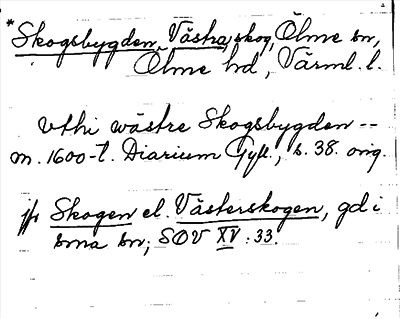 *Skogsbygden, Västra, skog, Ölme sn,
Ölme hd, Värml. l.
vthi wästre Skogsbygden --
m. 1600-t. Diarium Gyll., s. 38. orig.
jfr Skogen el. Västerskogen, gd i
sma sn; SOV XV : 33.